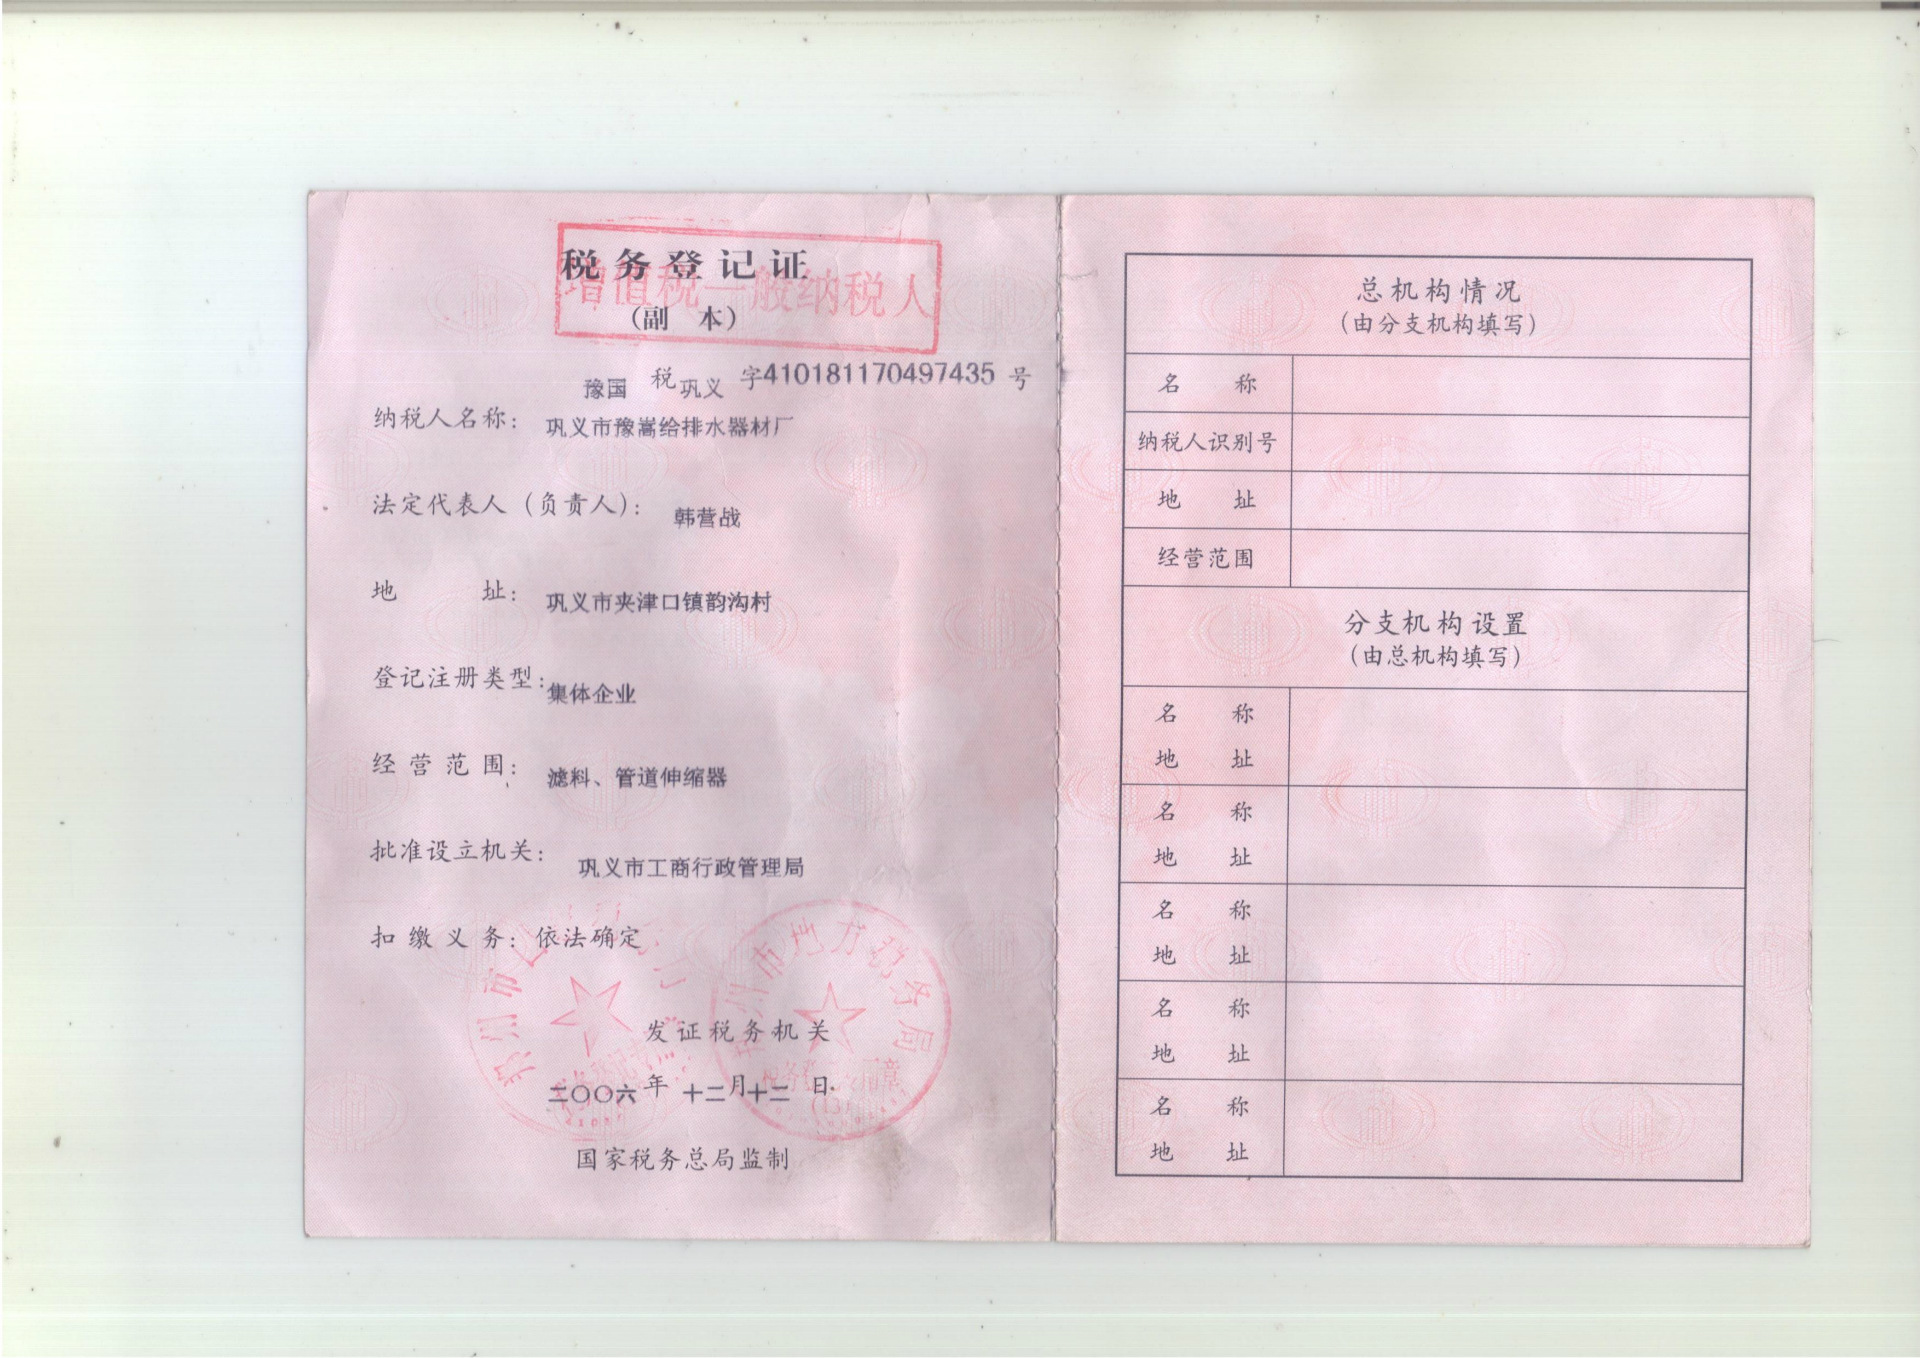 税务登记证
增值税一般纳税人
(副 本)
豫国 税 巩义 字410181170497435 号
纳税人名称: 巩义市豫嵩给排水器材厂
法定代表人(负责人): 韩营战
地 址: 巩义市夹津口镇韵沟村
登记注册类型: 集体企业
经营范围: 滤料、管道伸缩器
批准设立机关: 巩义市工商行政管理局
扣缴义务: 依法确定
郑州市地方税务局
发证税务机关
二〇〇六年 十二月十二日
国家税务总局监制
总机构情况
(由分支机构填写)
名 称
纳税人识别号
地 址
经营范围
分支机构设置
(由总机构填写)
名 称
地 址
名 称
地 址
名 称
地 址
名 称
地 址
名 称
地 址